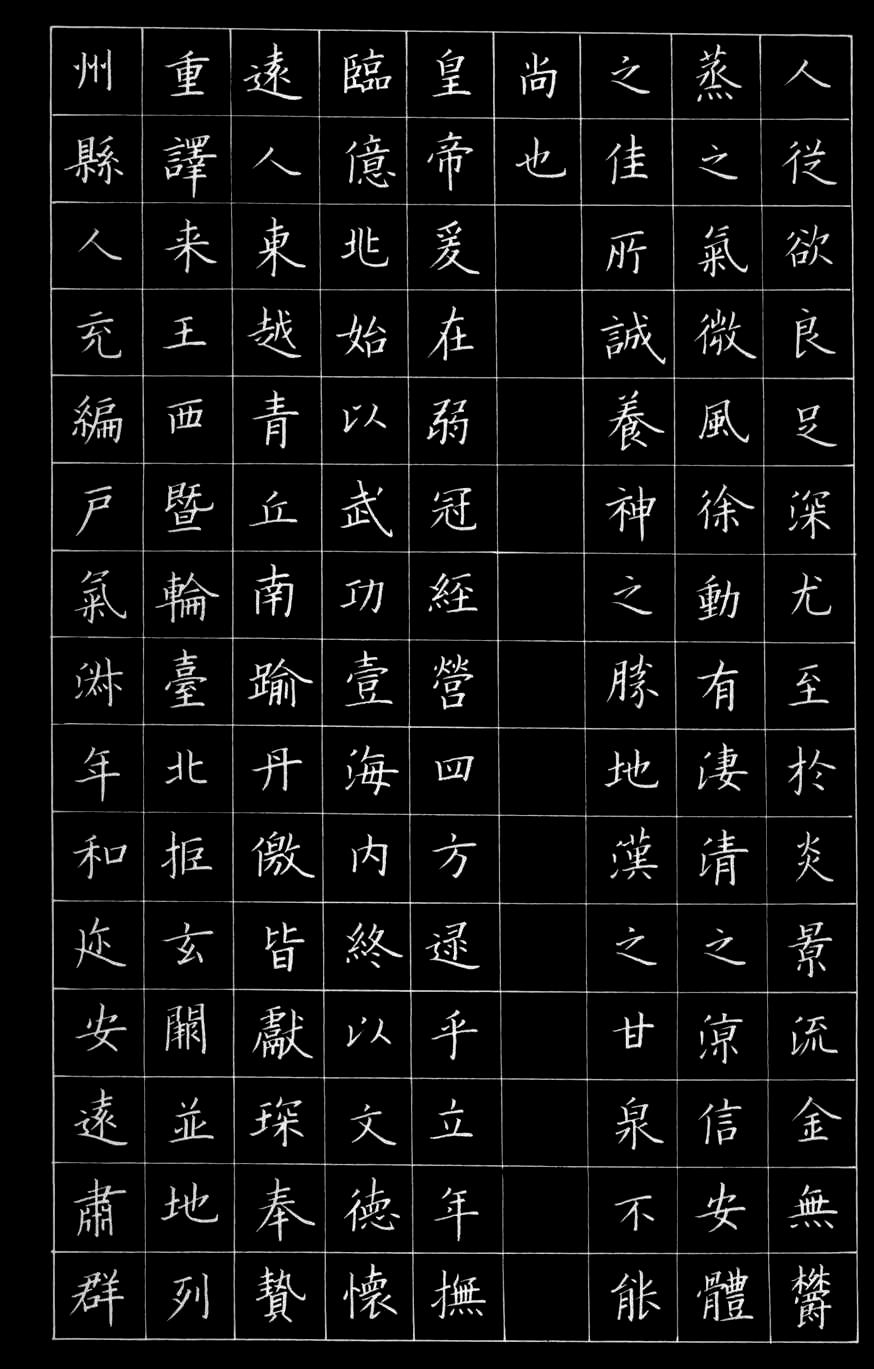 人從欲良足深尤至於炎景流金無鬱
蒸之氣微風徐動有淒清之涼信安體
之佳所誠養神之勝地漢之甘泉不能
尚也
皇帝爰在弱冠經營四方逮乎立年撫
臨億兆始以武功壹海內終以文德懷
遠人東越青丘南踰丹儌皆獻琛奉贄
重譯来王西暨輪臺北拒玄闕並地列
州縣人充編戶氣淑年和迩安遠肅群